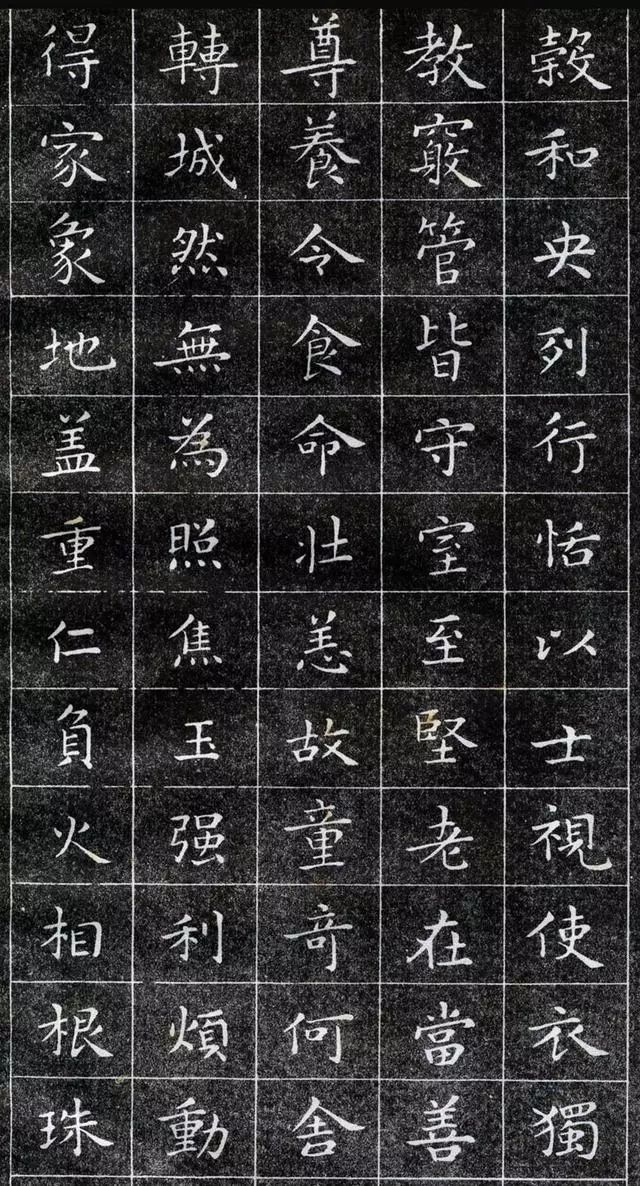 穀和央列行恬以士視使衣獨
教窾管皆守室至堅老在當善
尊養令食命壯恙故童奇何舍
轉城然無為照焦玉强利煩動
得家象地盖重仁負火相根珠